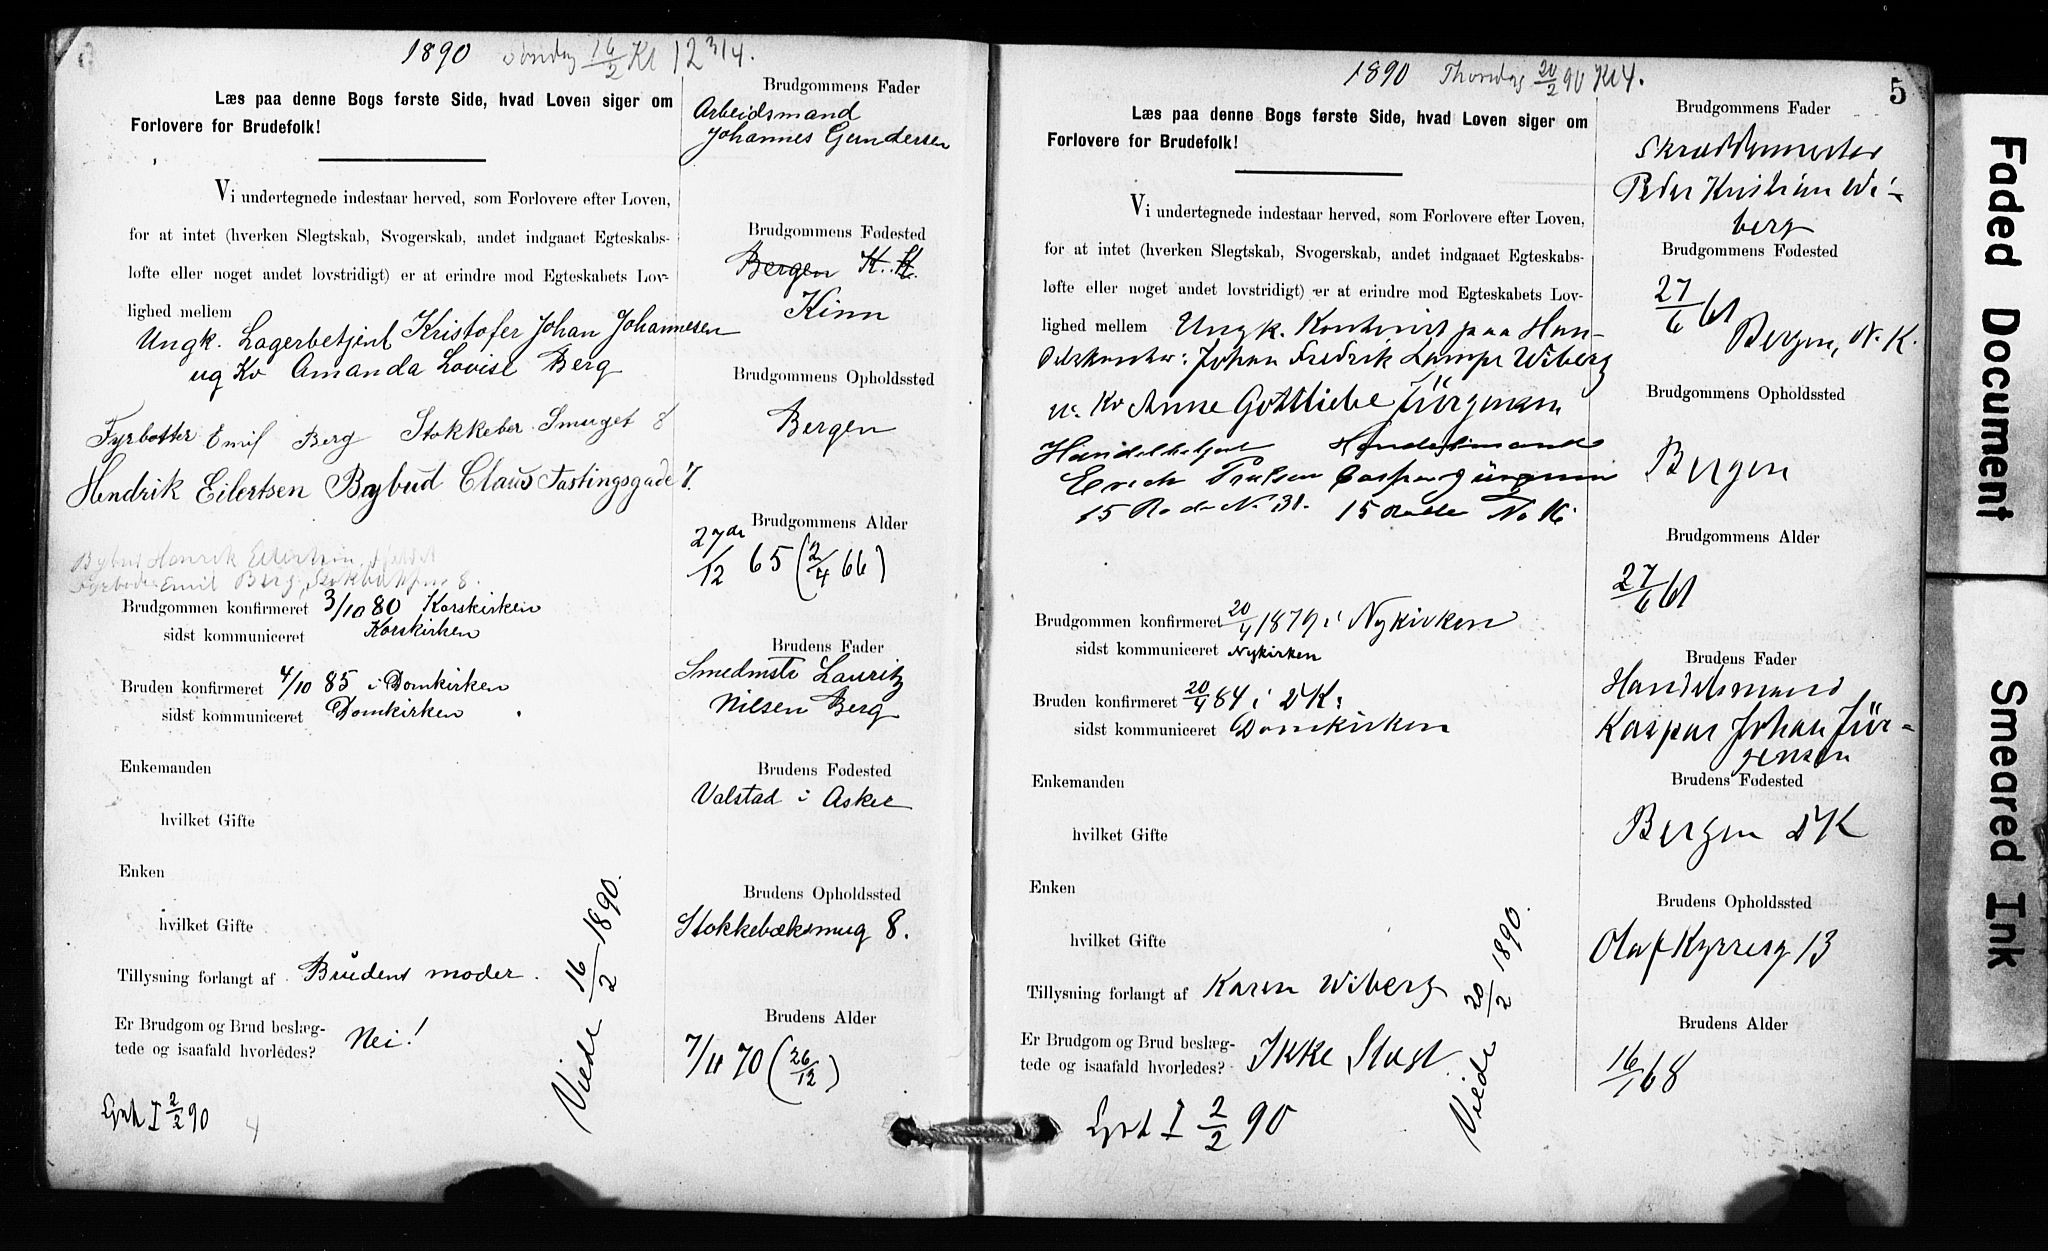 1890 Søndag 16/2 Kl 12 3/4.
Læs paa denne Bogs første Side, hvad Loven siger om
Forlovere for Brudefolk!
Vi undertegnede indestaar herved, som Forlovere efter Loven,
for at intet (hverken Slegtskab, Svogerskab, andet indgaaet Egteskabs-
løfte eller noget andet lovstridigt) er at erindre mod Egteskabets Lov-
lighed mellem
Ungk. Lagerbetjent Kristofer Johan Johannesen
og Kv Amanda Lovise Berg
Fyrbøtter Emil Berg Stokkeber Smuget 8
Hendrik Eilertsen Bybud Claus Fastingsgade
Bybud Henrik Eilertsen
Fyrbøder Emil Berg, 8.
Brudgommen konfirmeret 3/10 80 Korskirken
sidst kommuniceret Korskirken
Bruden konfirmeret 4/10 85 i Domkirken
sidst kommuniceret Domkirken
Enkemanden
hvilket Gifte
Enken
hvilket Gifte
Tillysning forlangt af Brudens moder.
Er Brudgom og Brud beslæg-
tede og isaafald hvorledes? Nei!
Viede 16/2 1890.
Lyst I 2/2 90
4
Brudgommens Fader
Arbeidsmand
Johannes Gundersen
Brudgommens Fødested
Bergen K. K.
Kinn
Brudgommens Opholdssted
Bergen
Brudgommens Alder
27de/12 65 (2/4 66)
Brudens Fader
Smedmstr Lauritz
Nilsen Berg
Brudens Fødested
Valstad i Asker
Brudens Opholdssted
Stokkebæksmug 8.
Brudens Alder
7/11 70 (26/12)
1890 Thorsdag 20/2 90 Kl 4.
5
Læs paa denne Bogs første Side, hvad Loven siger om
Forlovere for Brudefolk!
Vi undertegnede indestaar herved, som Forlovere efter Loven,
for at intet (hverken Slegtskab, Svogerskab, andet indgaaet Egteskabs-
løfte eller noget andet lovstridigt) er at erindre mod Egteskabets Lov-
lighed mellem Ungk. Kontorist paa Han-
delskontor: Johan Fredrik Lampe Wiberg
o. Kv Anne Gottliebe Jürgensen
Handelsbetjent Handelsmand
Erich Casper Jürgensen
15 Rode No 31. 15 Rode No 16
Brudgommen konfirmeret 20/4 1879 i Nykirken
sidst kommuniceret Nykirken
Bruden konfirmeret 20/4 84 i DK:
sidst kommuniceret Domkirken
Enkemanden
hvilket Gifte
Enken
hvilket Gifte
Tillysning forlangt af Karen Wiberg
Er Brudgom og Brud beslæg-
tede og isaafald hvorledes? Ikke Slægt.
Viede 20/2 1890.
Lyst I 2/2 90
Brudgommens Fader
Skræddermester
Peder Kristian Wi-
berg
Brudgommens Fødested
27/6 61
Bergen, N. K.
Brudgommens Opholdssted
Bergen
Brudgommens Alder
27/6 61
Brudens Fader
Handelsmand
Kaspar Johan Jür-
gensen
Brudens Fødested
Bergen DK
Brudens Opholdssted
Olaf Kyrresg 13
Brudens Alder
16/1 68
Faded Document
Smeared Ink